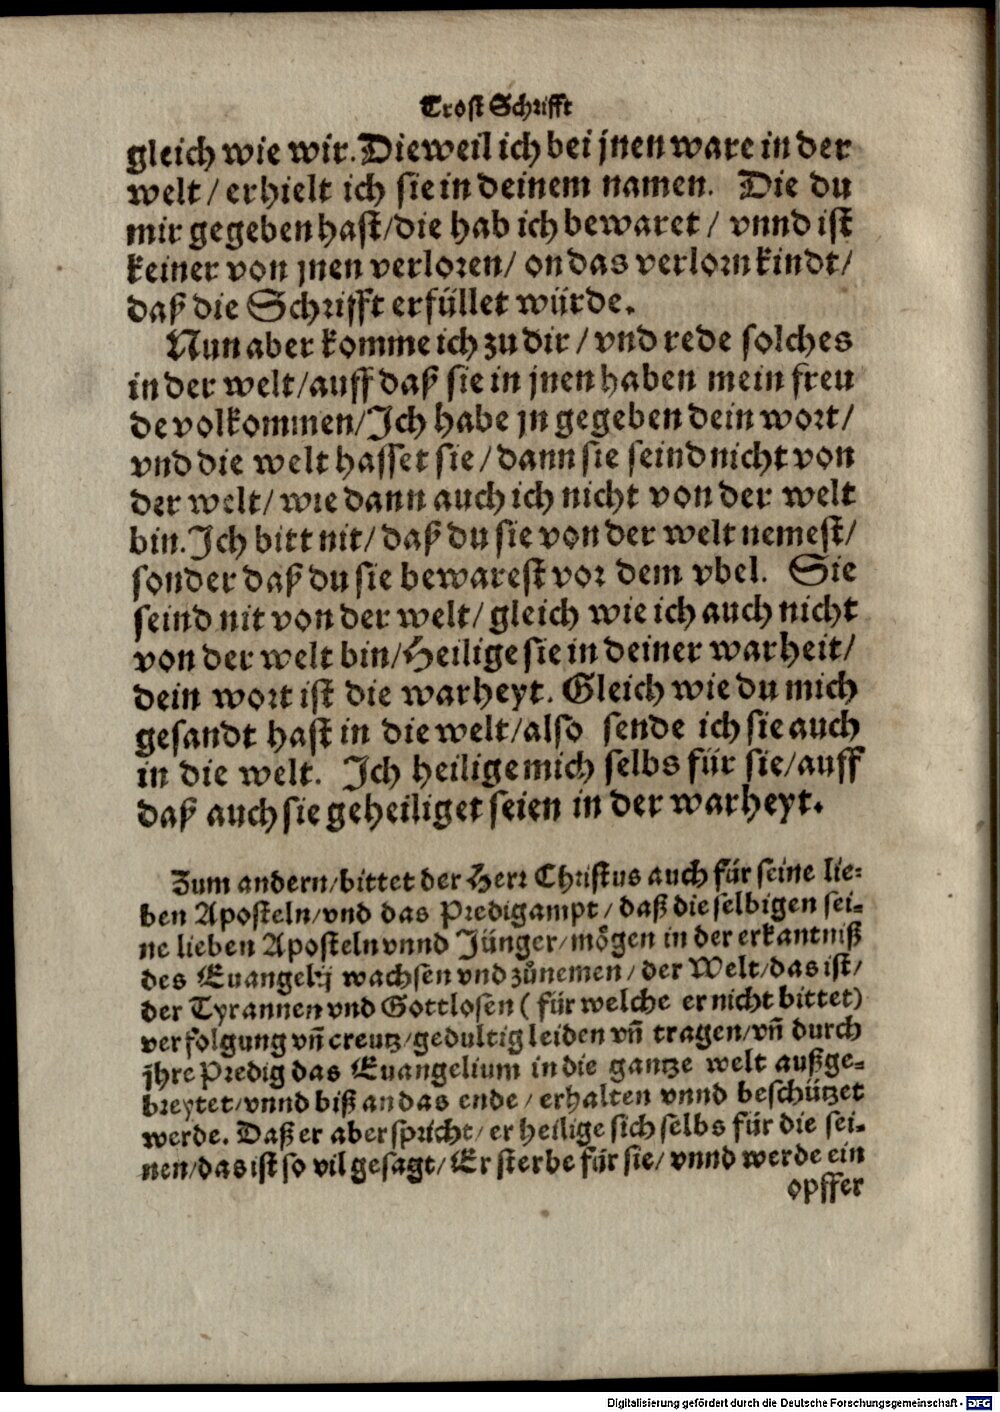 Trost Schrifft
gleich wie wir. Dieweil ich bei jnen ware in der
welt / erhielt ich sie in deinem namen. Die du
mir gegeben hast/die hab ich bewaret / vnnd ist
keiner von jnen verloren/ on das verlorn kindt/
daß die Schrifft erfüllet würde.
Nun aber komme ich zu dir / vnd rede solches
in der welt/auff daß sie in jnen haben mein freu
de volkommen/Ich habe jn gegeben dein wort/
vnd die welt hasset sie / dann sie seind nicht von
der welt/ wie dann auch ich nicht von der welt
bin. Ich bitt nit/ daß du sie von der welt nemest/
sonder daß du sie bewarest vor dem vbel. Sie
seind nit von der welt/ gleich wie ich auch nicht
von der welt bin/Heilige sie in deiner warheit/
dein wort ist die warheyt. Gleich wie du mich
gesandt hast in die welt/also sende ich sie auch
in die welt. Ich heilige mich selbs für sie/auff
daß auch sie geheiliget seien in der warheyt.
Zum andern/bittet der Herr Christus auch für seine lie-
ben Aposteln/vnd das Predigampt / daß dieselbigen sei-
ne lieben Aposteln vnnd Jünger/mögen in der erkantniß
des Euangelij wachsen vnd zůnemen / der Welt/das ist/
der Tyrannen vnd Gottlosen ( für welche er nicht bittet)
verfolgung vñ creutz/gedultig leiden vñ tragen/vñ durch
jhre Predig das Euangelium in die gantze welt außge-
breytet/vnnd biß an das ende / erhalten vnnd beschützet
werde. Daß er aber spricht/ er heilige sich selbs für die sei-
nen/das ist so vil gesagt/ Er sterbe für sie/ vnnd werde ein
opffer
Digitalisierung gefördert durch die Deutsche Forschungsgemeinschaft - DFG